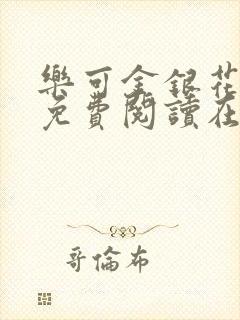 樂可金銀花
免費閱讀在
哥倫布